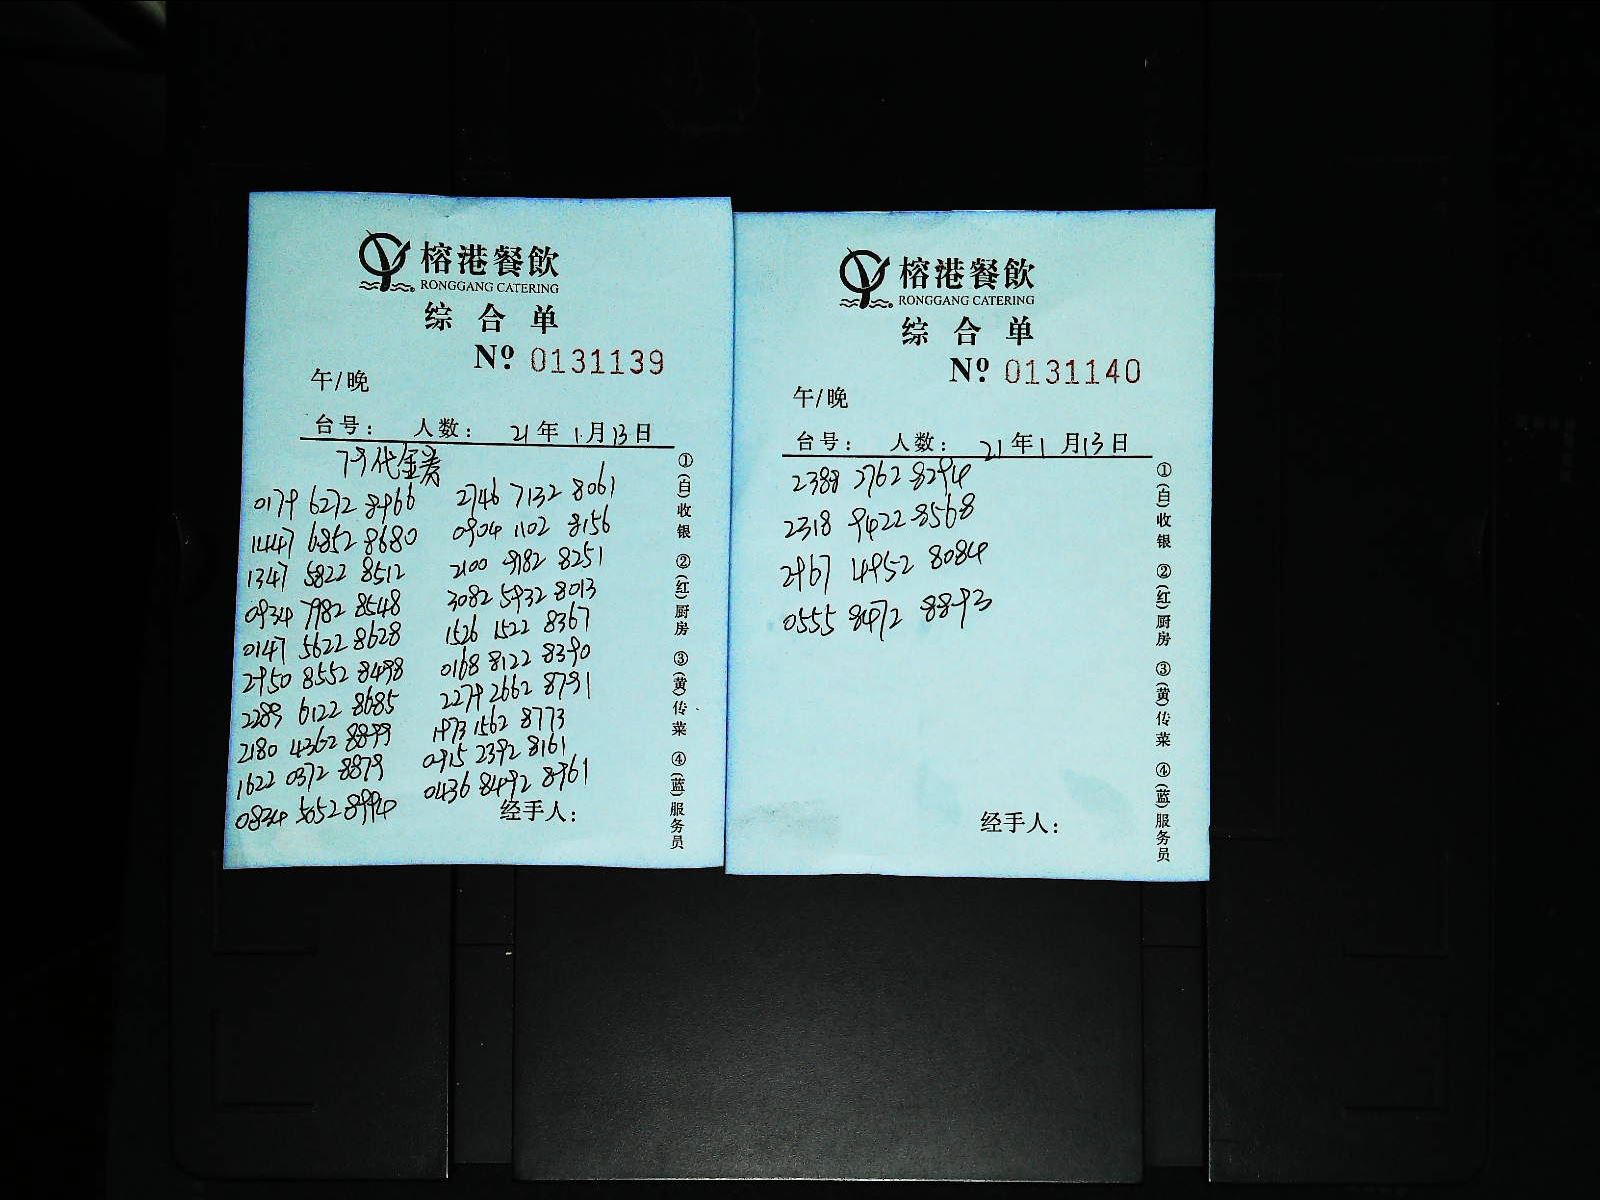 榕港餐飲
RONGGANG CATERING
综合单
Nº 0131139
午/晚
台号: 人数: 21年1月13日
75代金券
0179 6272 8966 2746 7132 8061
1447 6852 8680 0904 1102 8156
1347 5822 8512 2100 9182 8251
0934 7982 8548 3082 5932 8013
0147 5622 8628 1526 1522 8367
2950 8552 8498 0168 8122 8390
2289 6122 8685 2279 2662 8791
2180 4362 8899 1973 1562 8773
1622 0372 8879 0915 2392 8161
0834 5652 8994 0436 8492 8961
经手人:
①(白)收银 ②(红)厨房 ③(黄)传菜 ④(蓝)服务员
榕港餐飲
RONGGANG CATERING
综合单
Nº 0131140
午/晚
台号: 人数: 21年1月13日
2388 2762 8294
2318 9422 8568
2967 4952 8084
0555 8472 8893
经手人:
①(白)收银 ②(红)厨房 ③(黄)传菜 ④(蓝)服务员